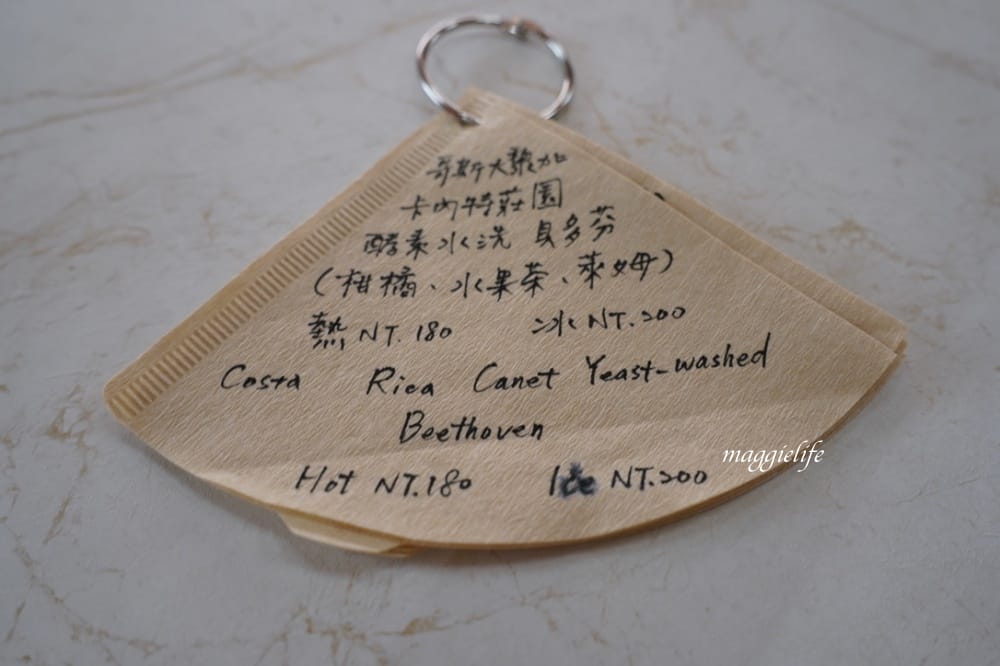 哥斯大黎加
卡內特莊園
酵素水洗 貝多芬
(柑橘、水果茶、萊姆)
熱 NT.180 冰 NT.200
Costa Rica Canet Yeast-washed
Beethoven
Hot NT.180 Ice NT.200
maggielife